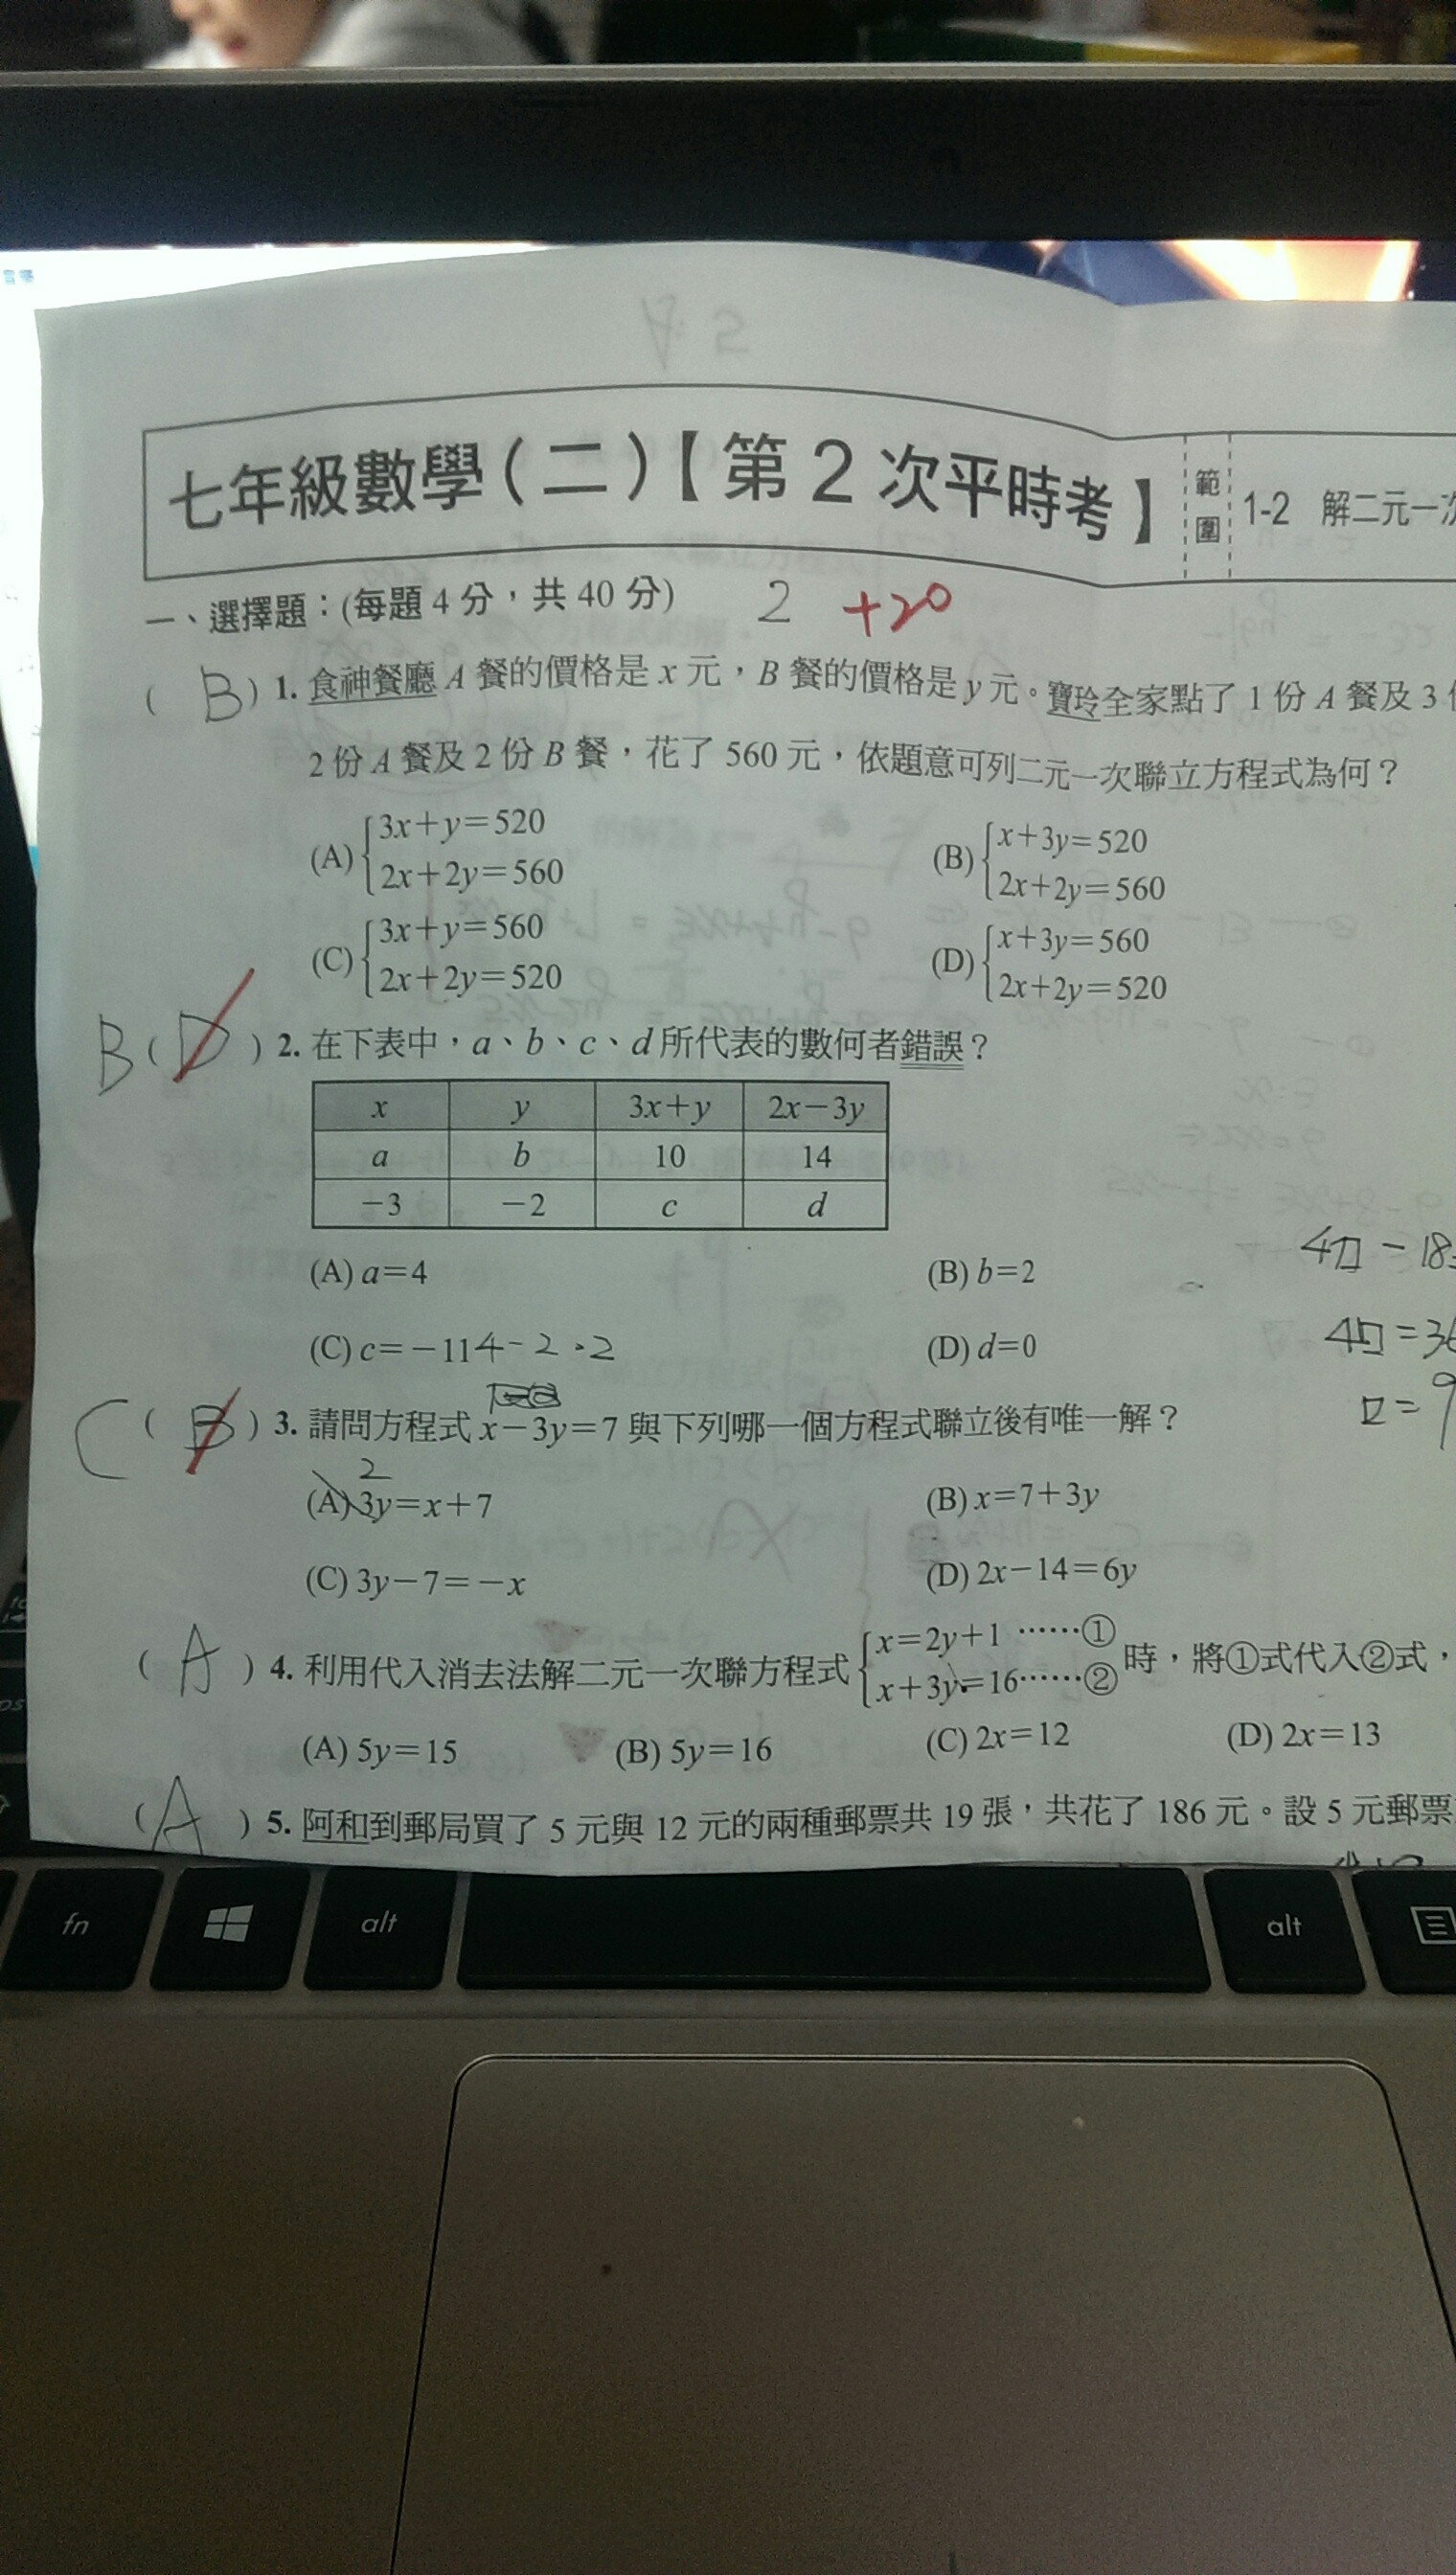 七年級數學(二)【第2次平時考】 範圍 1-2 解二元一次
一、選擇題：(每題4分，共40分) 2 +20
( B ) 1. 食神餐廳A餐的價格是x元，B餐的價格是y元。寶玲全家點了1份A餐及3
2份A餐及2份B餐，花了560元，依題意可列二元一次聯立方程式為何？
(A) { 3x+y=520 (B) { x+3y=520
2x+2y=560 2x+2y=560
(C) { 3x+y=560 (D) { x+3y=560
2x+2y=520 2x+2y=520
B ( D ) 2. 在下表中，a、b、c、d所代表的數何者錯誤？
x y 3x+y 2x-3y
a b 10 14
-3 -2 c d
4口-18
(A) a=4 (B) b=2
4口=36
(C) c=-11 4-2.2 (D) d=0
口=9
C ( B ) 3. 請問方程式x-3y=7與下列哪一個方程式聯立後有唯一解？
2
(A) 3y=x+7 (B) x=7+3y
(C) 3y-7=-x (D) 2x-14=6y
( A ) 4. 利用代入消去法解二元一次聯方程式 { x=2y+1 ……① 時，將①式代入②式，
x+3y=16……②
(A) 5y=15 (B) 5y=16 (C) 2x=12 (D) 2x=13
( A ) 5. 阿和到郵局買了5元與12元的兩種郵票共19張，共花了186元。設5元郵票
fn alt alt